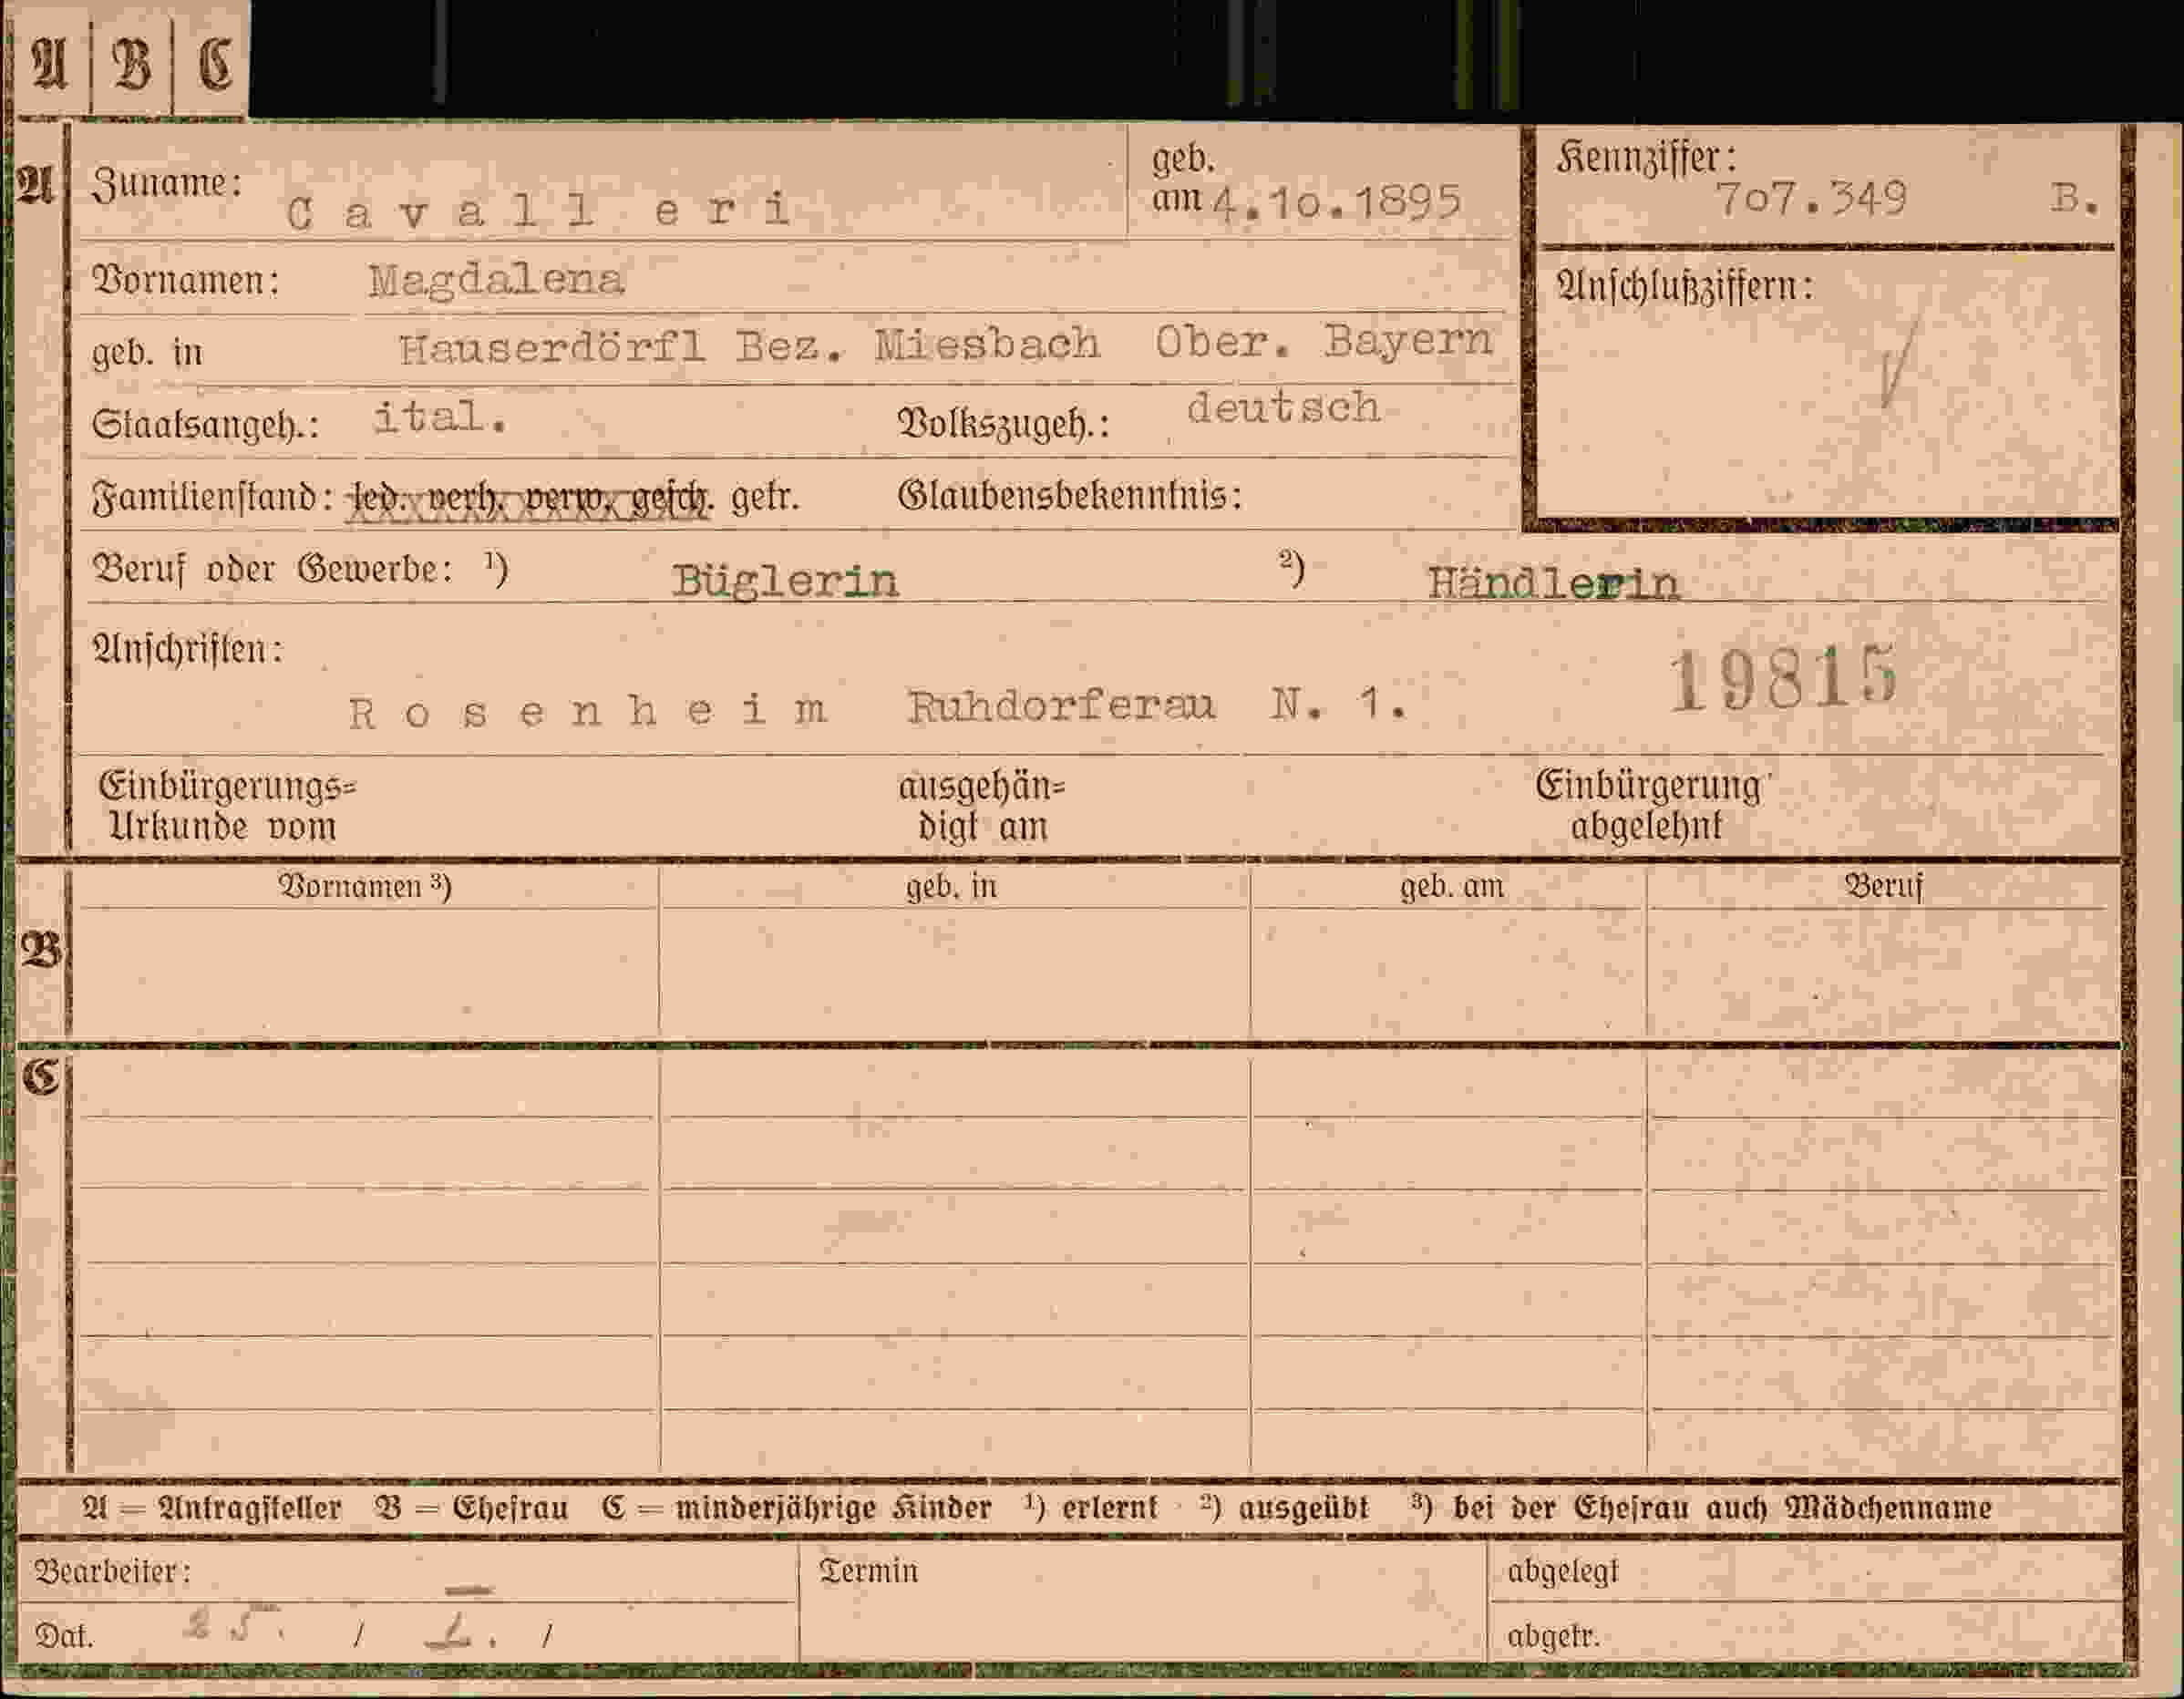 A B C
A Zuname: Cavalleri geb. am 4.10.1895 Kennziffer: 707.349 B.
Vornamen: Magdalena Anschlußziffern:
geb. in Hauserdörfl Bez. Miesbach Ober. Bayern
Staatsangeh.: ital. Volkszugeh.: deutsch
Familienstand: led. verh. verw. gesch. getr. Glaubensbekenntnis:
Beruf oder Gewerbe: ¹) Büglerin ²) Händlerin
Anschriften:
19815
Rosenheim Ruhdorferau N. 1.
Einbürgerungs= ausgehän= Einbürgerung
Urkunde vom digt am abgelehnt
Vornamen ³) geb. in geb. am Beruf
B
C
A = Antragsteller B = Ehefrau C = minderjährige Kinder ¹) erlernt ²) ausgeübt ³) bei der Ehefrau auch Mädchenname
Bearbeiter: Termin abgelegt
Dat. 25. / / abgetr.